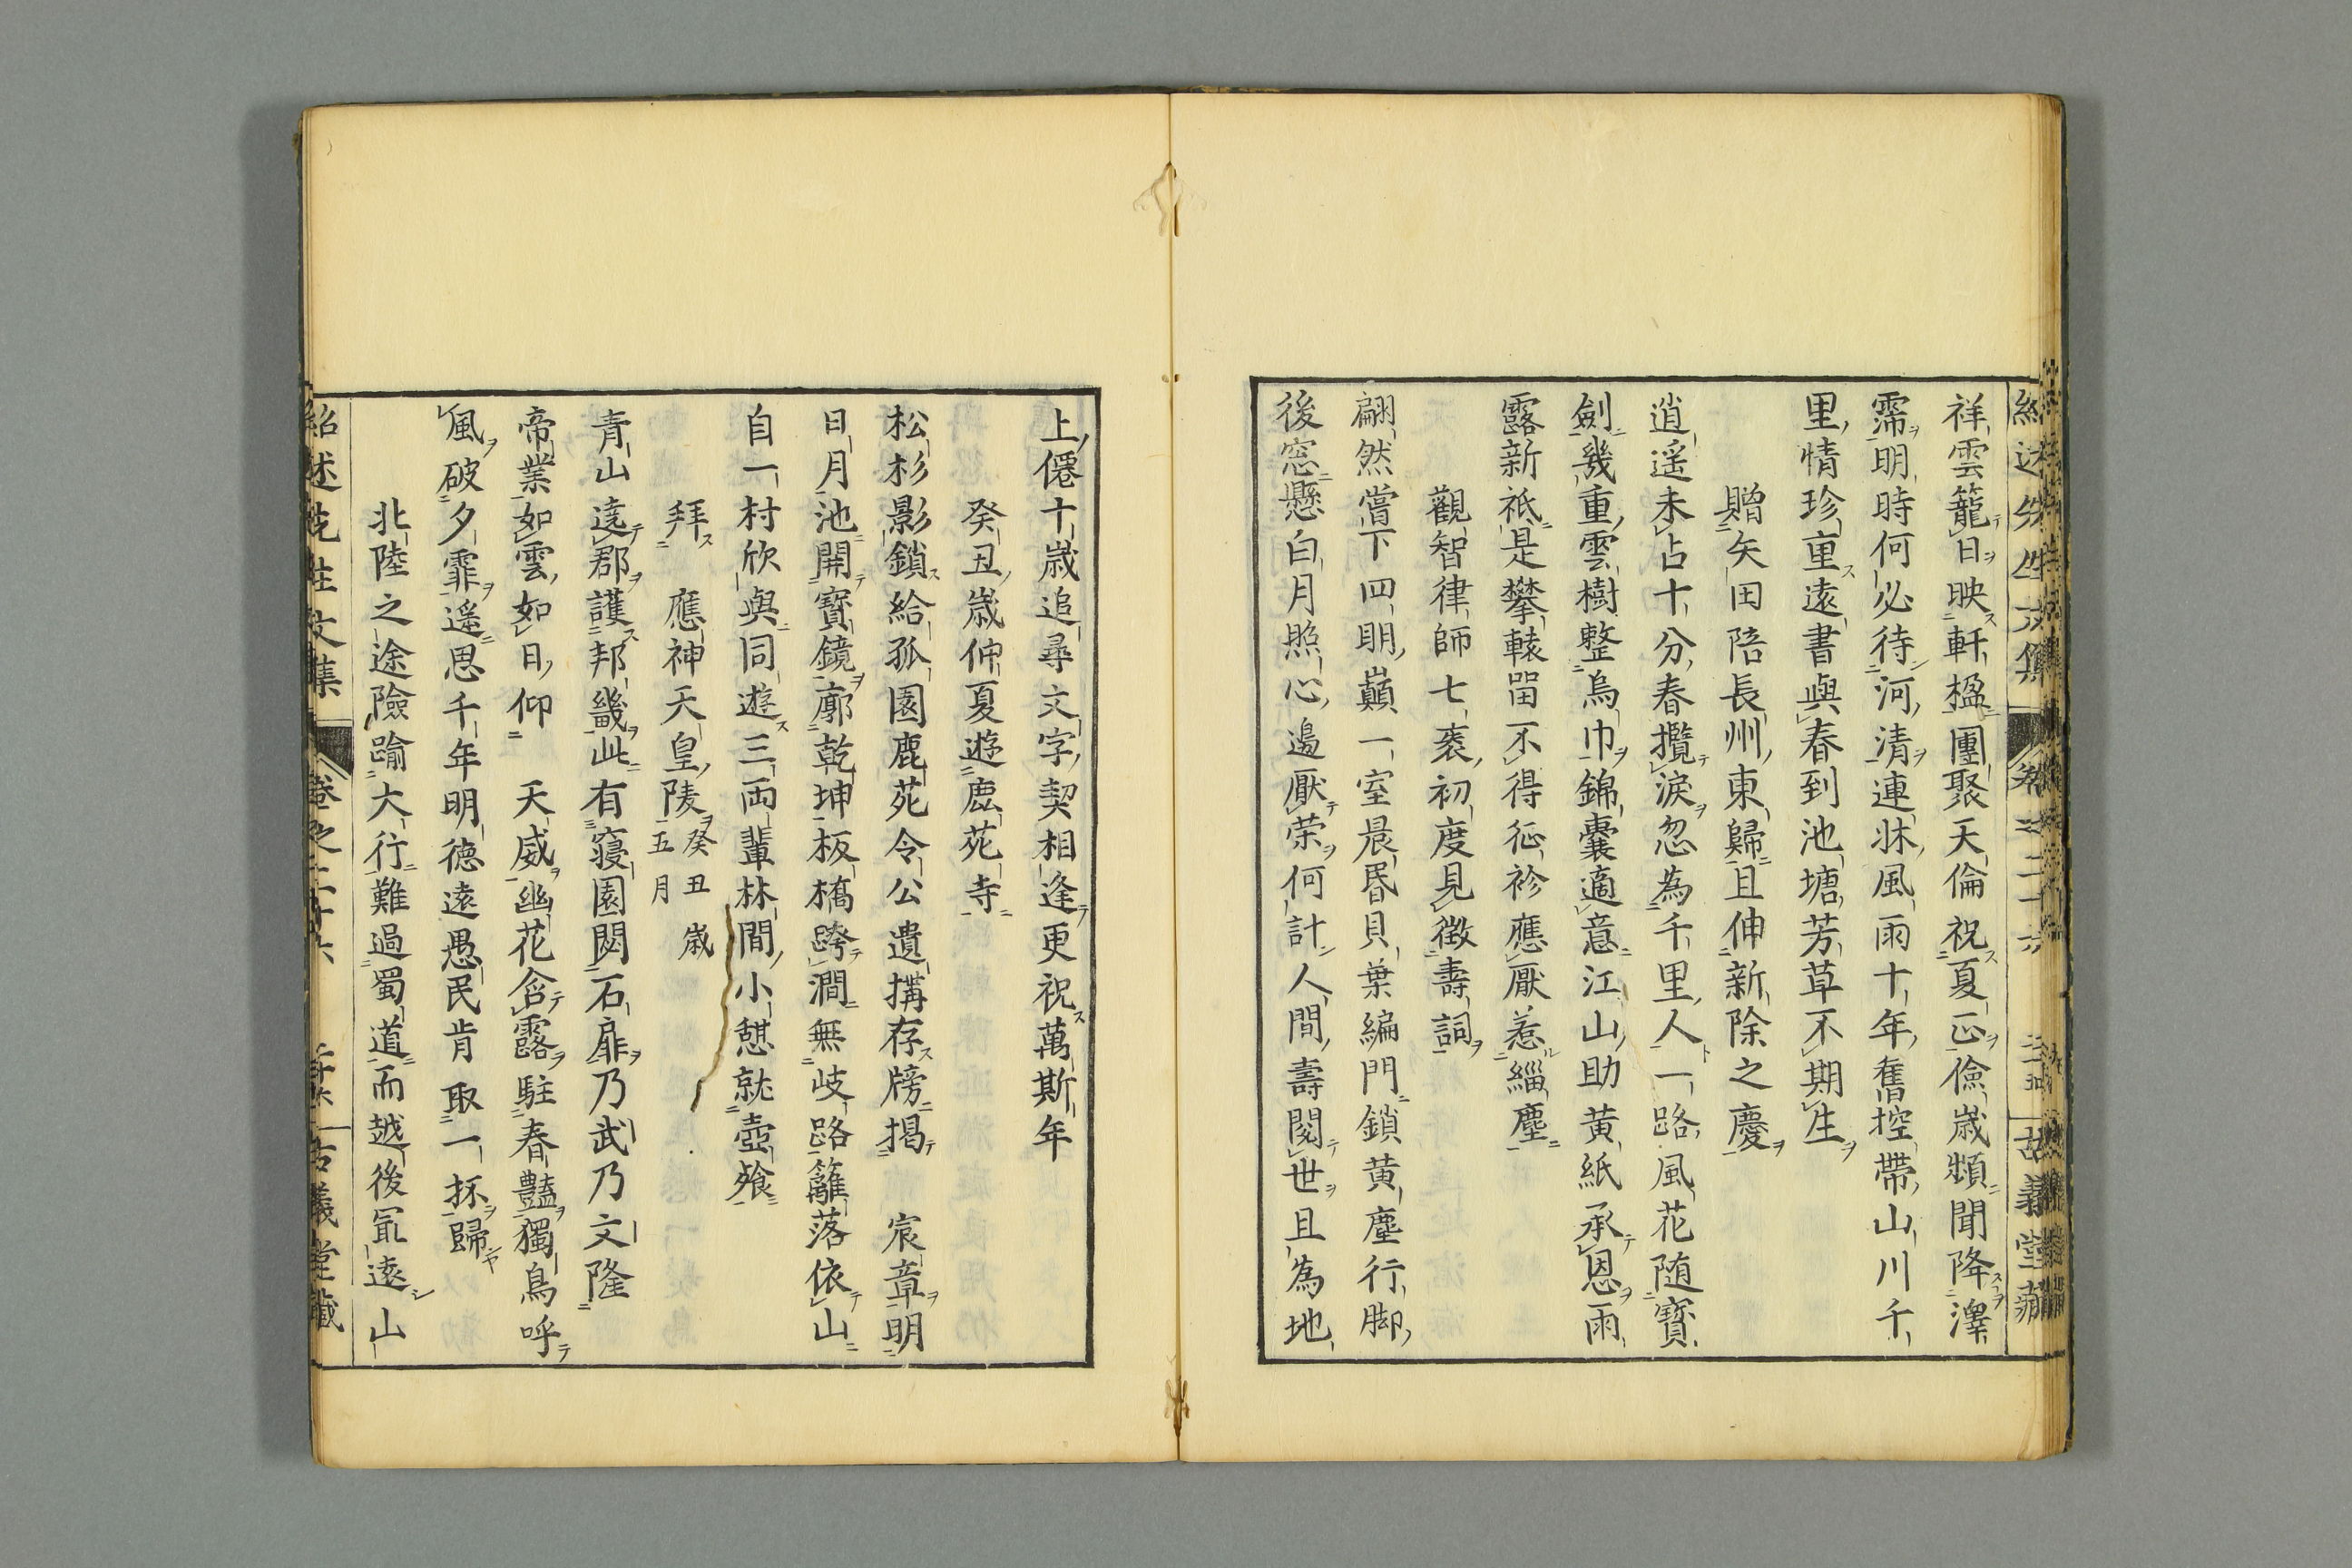 祥雲籠日映軒楹團聚天倫祝夏正儉歲頻聞降澤
霈明時何必待河清連牀風雨十年舊控帶山川千
里情珍重遠書與春到池塘芳草不期生
贈矢田陪長州東歸且伸新除之慶
逍遥未占十分春攬淚忽為千里人一路風花随寶
劍幾重雲樹整烏巾錦囊適意江山助黄紙承恩雨
露新祇是攀轅畱不得征衫應厭惹緇塵
觀智律師七袠初度見徴壽詞
翩然嘗下四明巔一室晨昏貝葉編門鎖黄塵行脚
後窓懸白月照心邉厭荣何計人間壽閲世且為地
上僊十歲追尋文字契相逢更祝萬斯年
癸丑歲仲夏遊鹿苑寺
松杉影鎖給孤園鹿苑令公遺搆存牓掲 宸章明
日月池開寳鏡廓乾坤板橋跨澗無岐路籬落依山
自一村欣與同遊三両輩林間小憩就壺飱
拜 應神天皇陵癸丑歲五月
青山遶郡護邦畿此有寢園閟石扉乃武乃文隆
帝業如雲如日仰 天威幽花含露駐春豔獨鳥呼
風破夕霏遥思千年明德遠愚民肯取一抔歸
北陸之途險踰大行難過蜀道而越後冣遠山
紹述先生文集 卷之二十六 古義堂藏